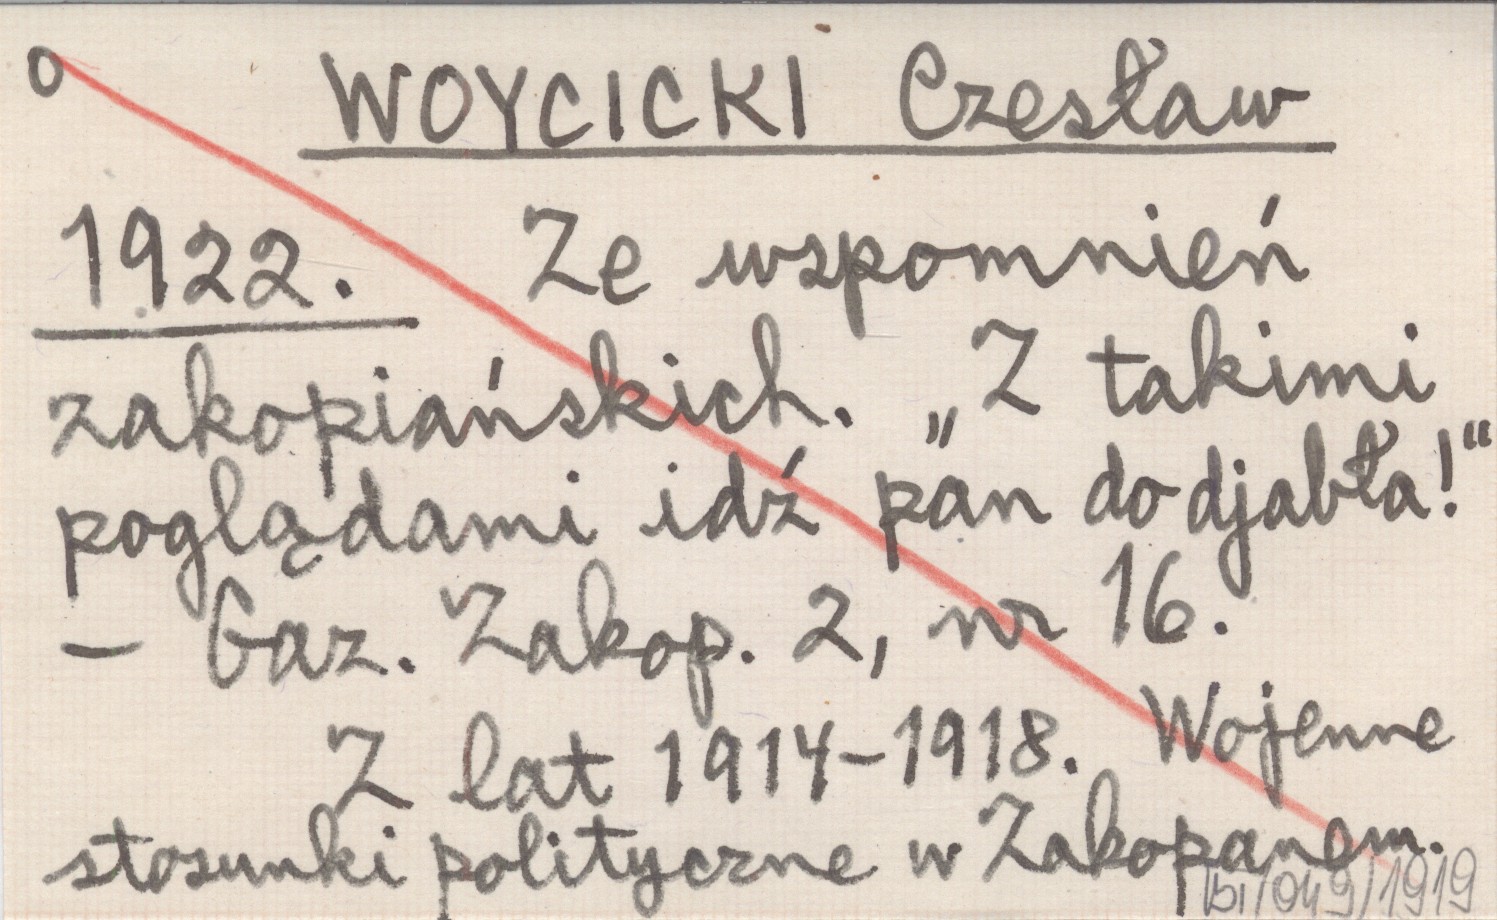 o WOYCICKI Czesław
1922. Ze wspomnień
zakopiańskich. „Z takimi
poglądami idź pan do djabła!“
— Gaz. Zakop. 2, nr 16.
Z lat 1914–1918. Wojenne
stosunki polityczne w Zakopanem.
/049/1919